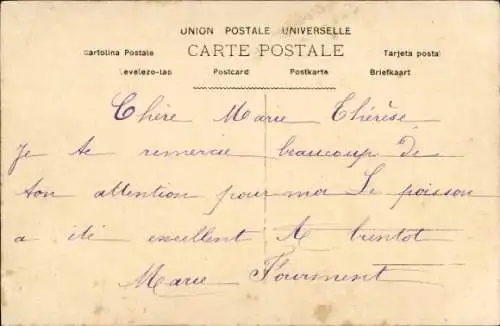 UNION POSTALE UNIVERSELLE
CARTE POSTALE
Cartolina Postale
Tarjeta postal
Levelezo-lap
Postcard
Postkarte
Briefkaart
Chère Marie Thérèse
Je te remercie beaucoup de
ton attention pour moi Le poisson
a été excellent A bientot
Marie Fourment